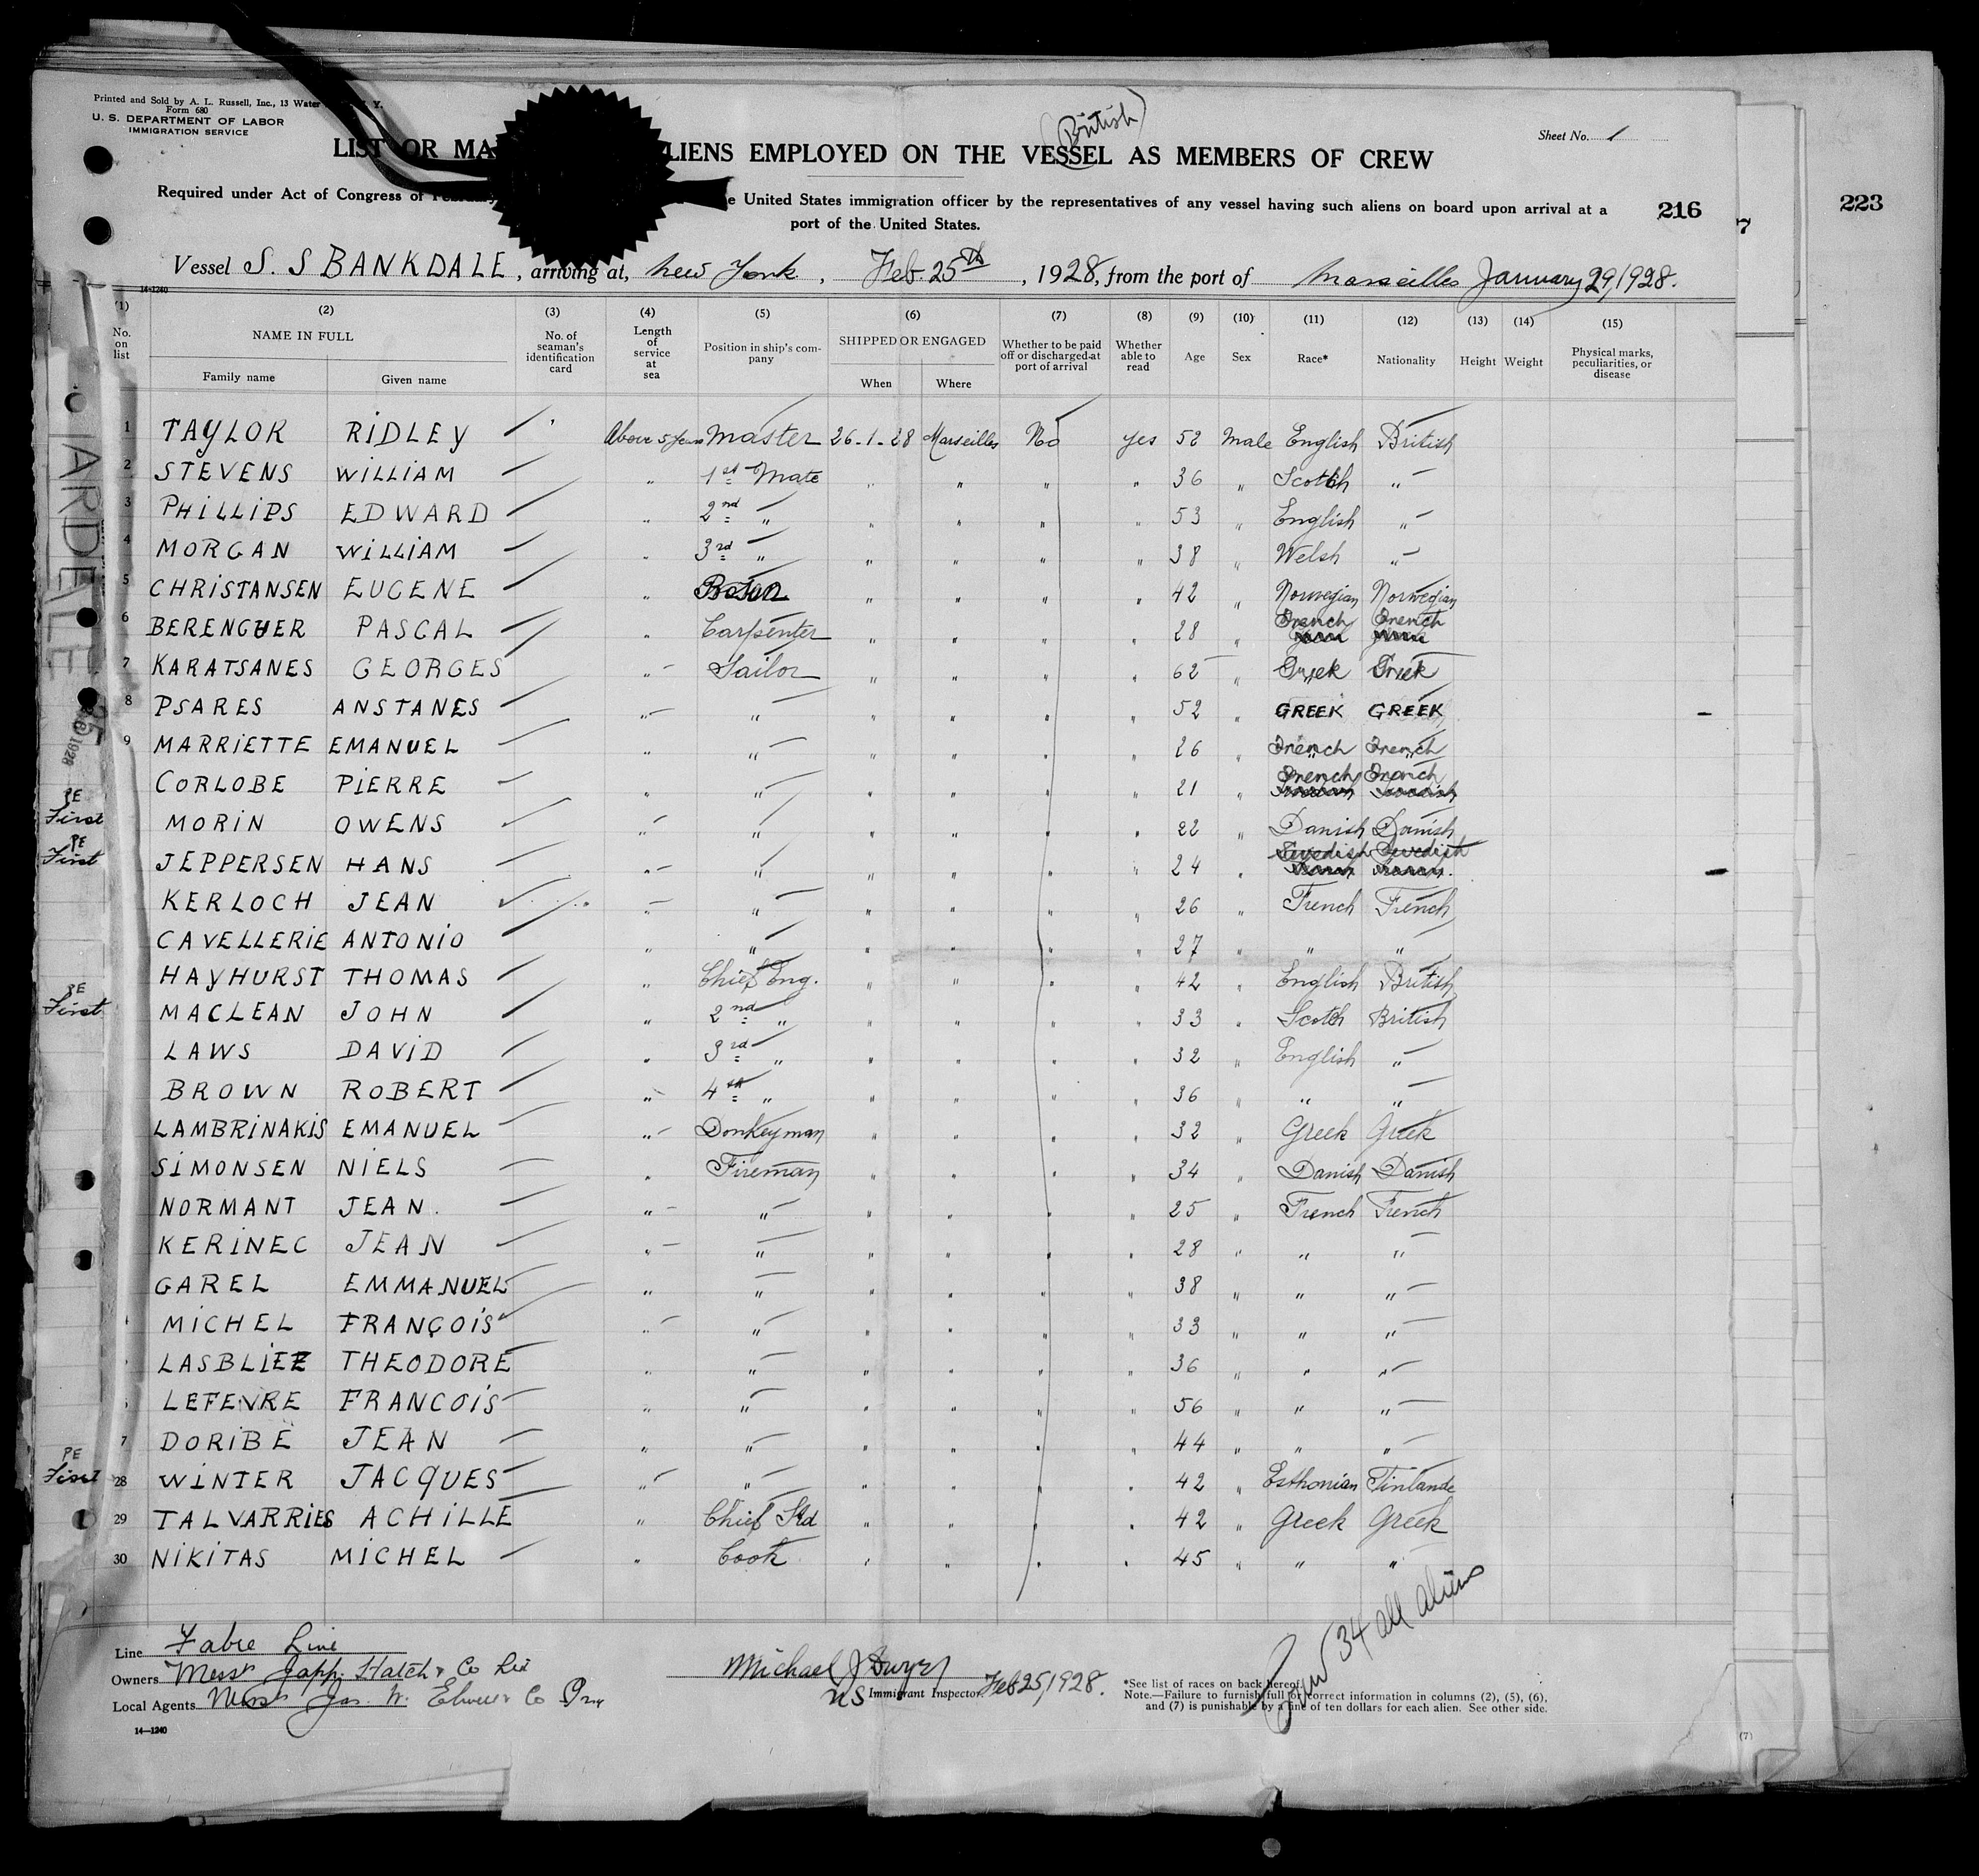 Printed and Sold by A. L. Russell, Inc., 13 Water Y.
Form 680
U. S. DEPARTMENT OF LABOR
IMMIGRATION SERVICE
(British)
Sheet No. 1
LIST OR MA LIENS EMPLOYED ON THE VESSEL AS MEMBERS OF CREW
Required under Act of Congress of February e United States immigration officer by the representatives of any vessel having such aliens on board upon arrival at a
port of the United States.
216
7
223
Vessel S. S BANKDALE, arriving at, New York, Feb. 25th, 1928, from the port of Marseilles January 29, 1928.
14-1240
(1) No. on list (2) NAME IN FULL Family name Given name (3) No. of seaman's identification card (4) Length of service at sea (5) Position in ship's company (6) SHIPPED OR ENGAGED When Where (7) Whether to be paid off or discharged at port of arrival (8) Whether able to read (9) Age (10) Sex (11) Race* (12) Nationality (13) Height (14) Weight (15) Physical marks, peculiarities, or disease
1 TAYLOR RIDLEY Above 5 years Master 26-1-28 Marseilles No yes 52 Male English British
2 STEVENS WILLIAM " 1st Mate " " " " 36 " Scotch "
3 PHILLIPS EDWARD " 2nd " " " " " 53 " English "
4 MORGAN WILLIAM " 3rd " " " " " 38 " Welsh "
5 CHRISTANSEN EUGENE " Bosun " " " " 42 " Norwegian Norwegian
6 BERENGUER PASCAL " Carpenter " " " " 28 " French French
7 KARATSANES GEORGES " Sailor " " " " 62 " Greek Greek
8 PSARES ANSTANES " " " " " " 52 " GREEK GREEK
9 MARRIETTE EMANUEL " " " " " " 26 " French French
CORLOBE PIERRE " " " " " " 21 " French French
PE First MORIN OWENS " " " " " " 22 " Danish Danish
PE First JEPPERSEN HANS " " " " " " 24 " Swedish Swedish
KERLOCH JEAN " " " " " " 26 " French French
CAVELLERIE ANTONIO " " " " " " 27 " " "
HAYHURST THOMAS " Chief Eng. " " " " 42 " English British
PE First MACLEAN JOHN " 2nd " " " " " 33 " Scotch British
LAWS DAVID " 3rd " " " " " 32 " English "
BROWN ROBERT " 4th " " " " " 36 " " "
LAMBRINAKIS EMANUEL " Donkeyman " " " " 32 " Greek Greek
SIMONSEN NIELS " Fireman " " " " 34 " Danish Danish
NORMANT JEAN. " " " " " " 25 " French French
KERINEC JEAN " " " " " " 28 " " "
GAREL EMMANUEL " " " " " " 38 " " "
MICHEL FRANÇOIS " " " " " " 33 " " "
LASBLIEZ THEODORE " " " " " " 36 " " "
LEFEVRE FRANCOIS " " " " " " 56 " " "
7 DORIBE JEAN " " " " " " 44 " " "
PE First 28 WINTER JACQUES " " " " " " 42 " Esthonian Finlande
29 TALVARRIES ACHILLE " Chief Std " " " " 42 " Greek Greek
30 NIKITAS MICHEL " Cook " " " " 45 " " "
ARDEALE
Crew 34 all aliens
Line Fabre Line
Owners Messrs Japp. Hatch & Co Ltd
Local Agents Messrs Jas. W. Elwell & Co
Michael J Dwyer
US Immigrant Inspector. Feb 25, 1928.
*See list of races on back hereof.
Note.—Failure to furnish full or correct information in columns (2), (5), (6),
and (7) is punishable by a fine of ten dollars for each alien. See other side.
14—1240
(7)